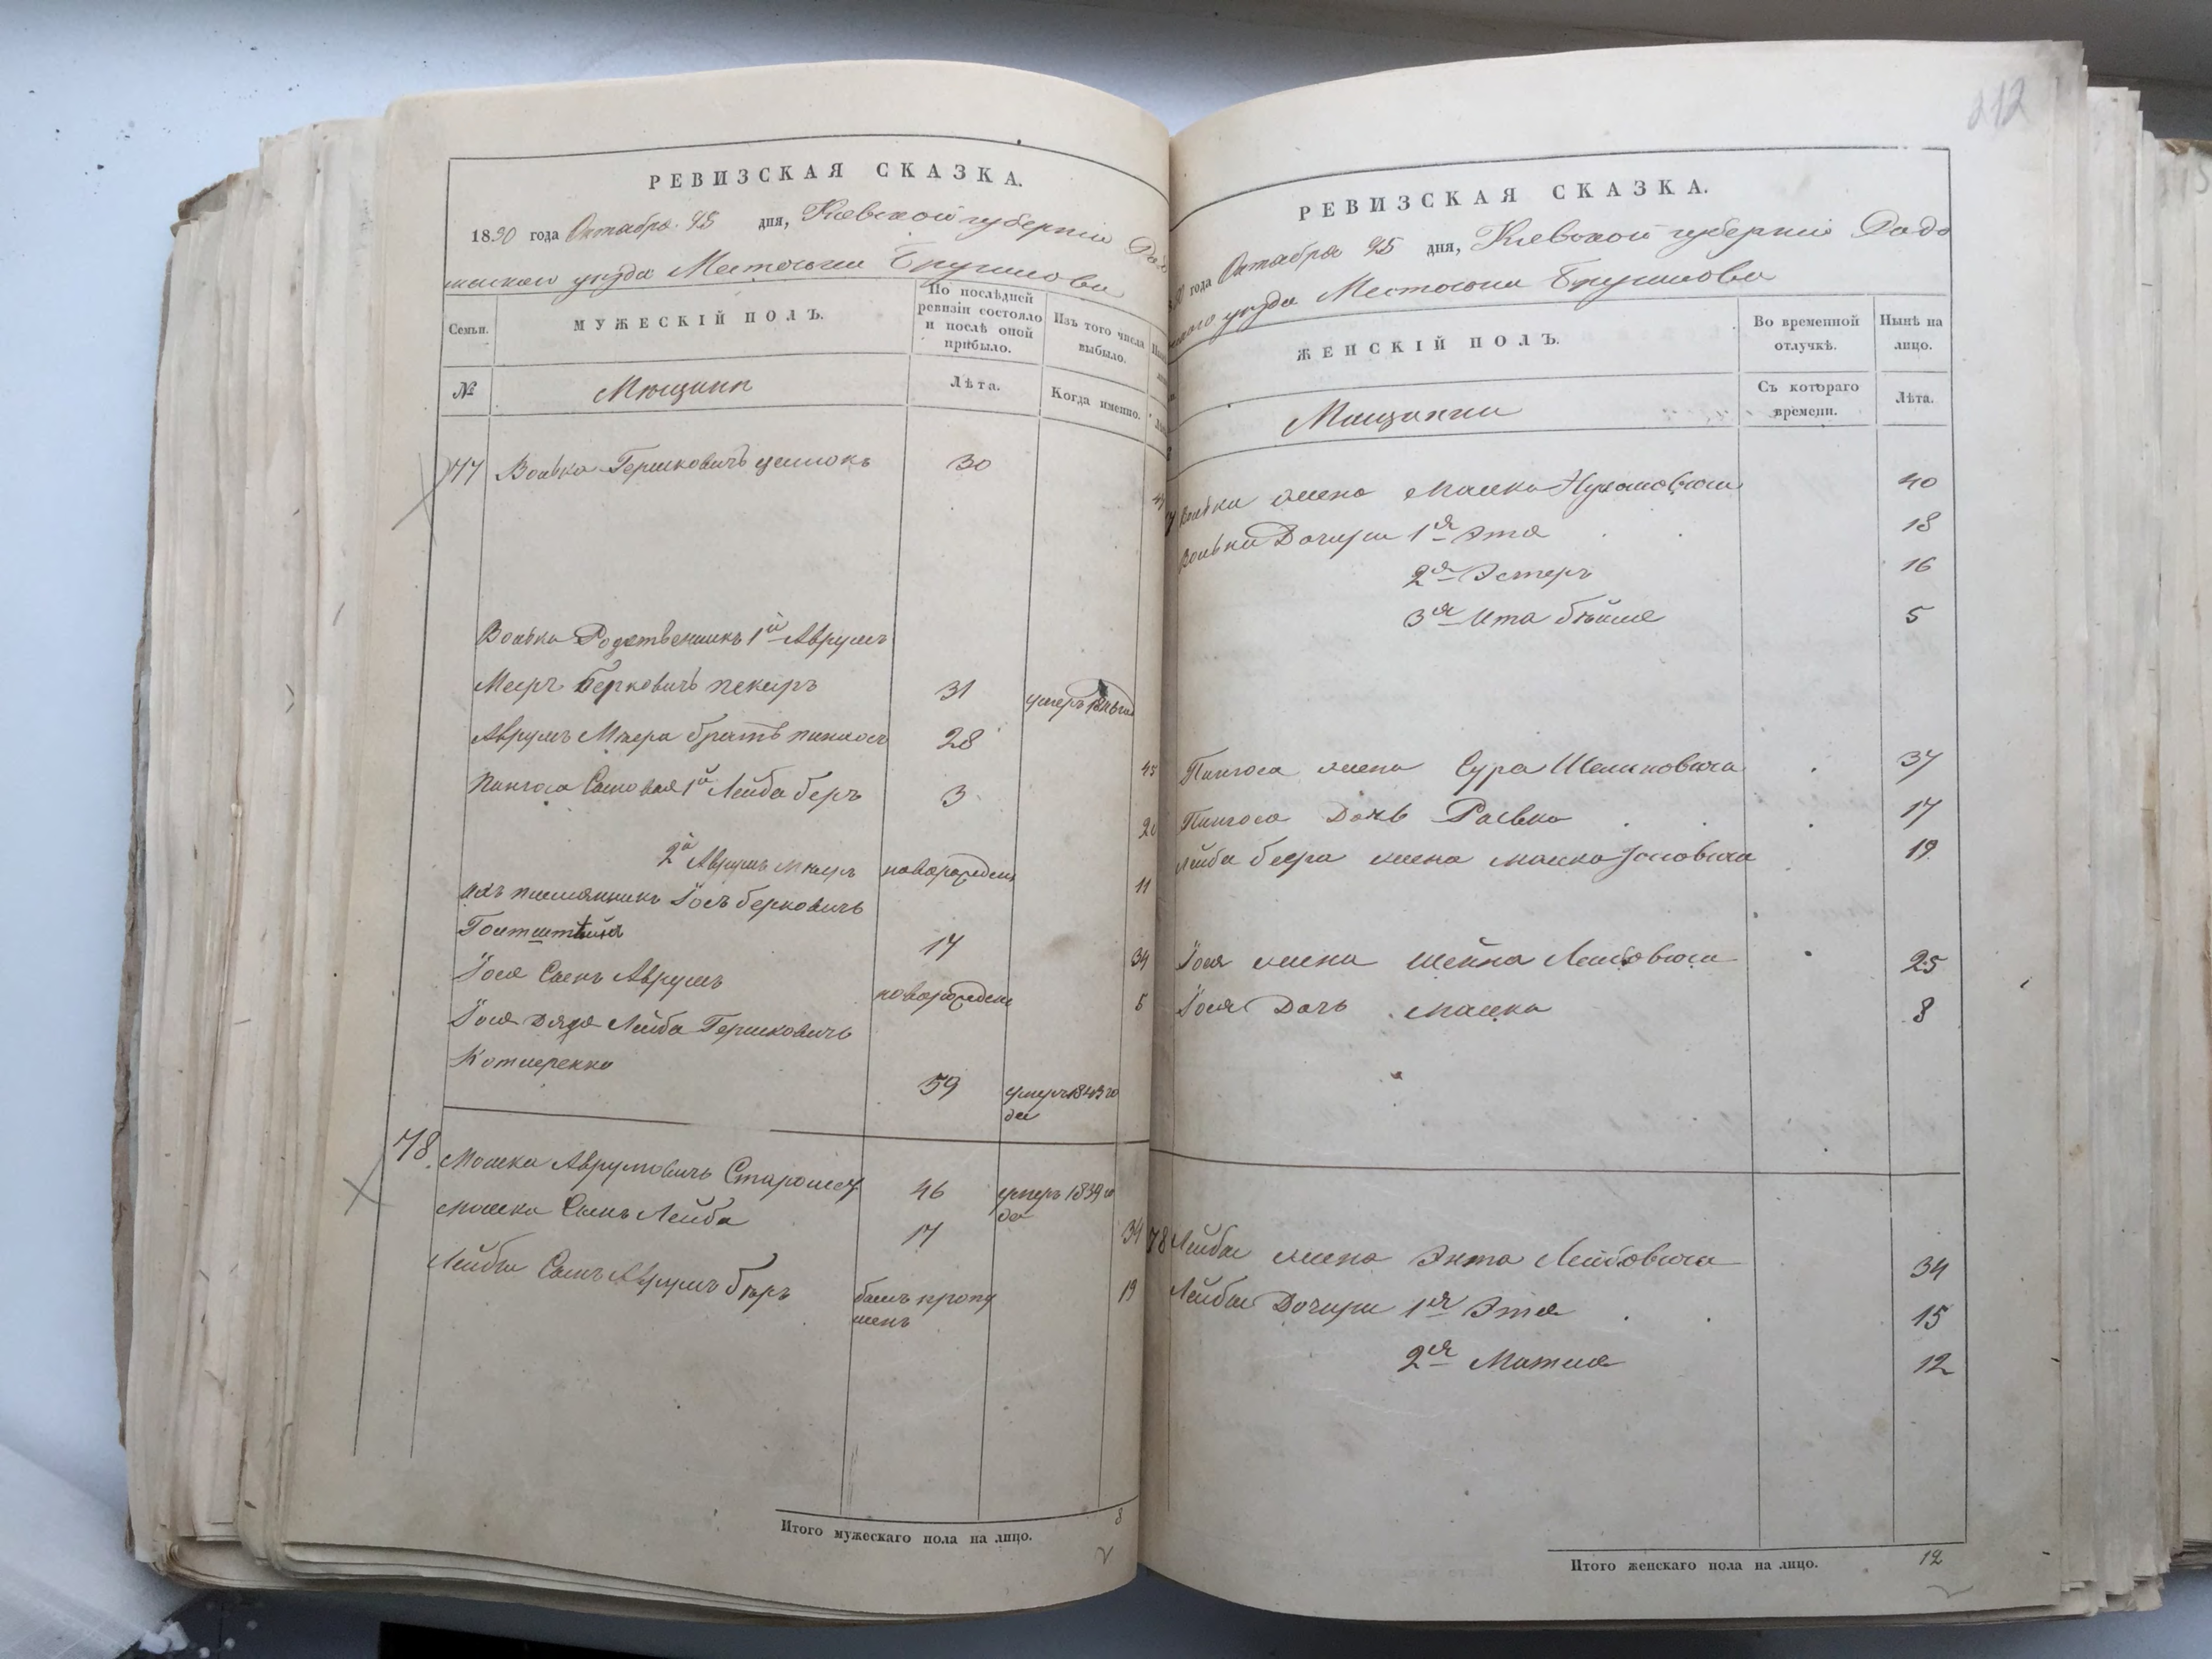 РЕВИЗСКАЯ СКАЗКА.
1850 года Октября 25 дня, Киевской губерніи Радо
мысльского уезда Местечка Брусилова
Семьи.
МУЖЕСКІЙ ПОЛЪ.
По послѣдней ревизіи состояло и послѣ оной прибыло.
Изъ того числа выбыло.
№
Мещани
Лѣта.
Когда именно.
77 Волька Гершковичъ 30
Волька Родственникъ 1й Аврумъ
Мееръ Берковичъ пекаръ 31 умеръ
Аврумъ Меера братъ пинхосъ 28 45
Пинхоса Сыновья 1й Лейба беръ 3 20
2й Аврумъ Мееръ новорожденъ 11
ихъ племянникъ Іосъ берковичъ
17 34
Іося Сынъ Аврумъ новорожденъ 5
Іося Дядя Лейба Гершковичъ
59 умеръ 1843 го
да
78 Мошко Аврумовичъ 46 умеръ 1839 го
да
Мошка Сынъ Лейба 17 34
Лейбы Сынъ Аврумъ беръ былъ пропу
щенъ 19
Итого мужескаго пола на лицо. 8
212
РЕВИЗСКАЯ СКАЗКА.
года Октября 25 дня, Киевской губерніи Радо
уезда Местечка Брусилова
ЖЕНСКІЙ ПОЛЪ.
Во временной отлучкѣ.
Нынѣ на лицо.
Мещанки
Съ котораго времени.
Лѣта.
Вольки жена Малка 40
Вольки Дочери 1я Этя 18
2я Эстеръ 16
3я Ита бейля 5
Пинхоса жена Сура 37
Пинхоса Дочь Ривка 17
Лейба бера жена Малка 19
Іося жена Шейна Лейбовича 25
Іося Дочь Малка 8
78 Лейбы жена Лейбовича 34
Лейбы Дочери 1я Этя 15
2я 12
Итого женскаго пола на лицо. 12